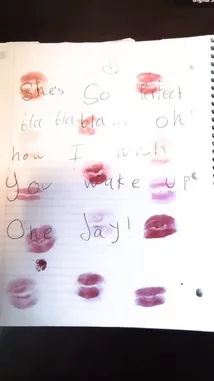 ①
She's So Perfect
bla bla bla... oh!
how I wish
You wake up
One day!